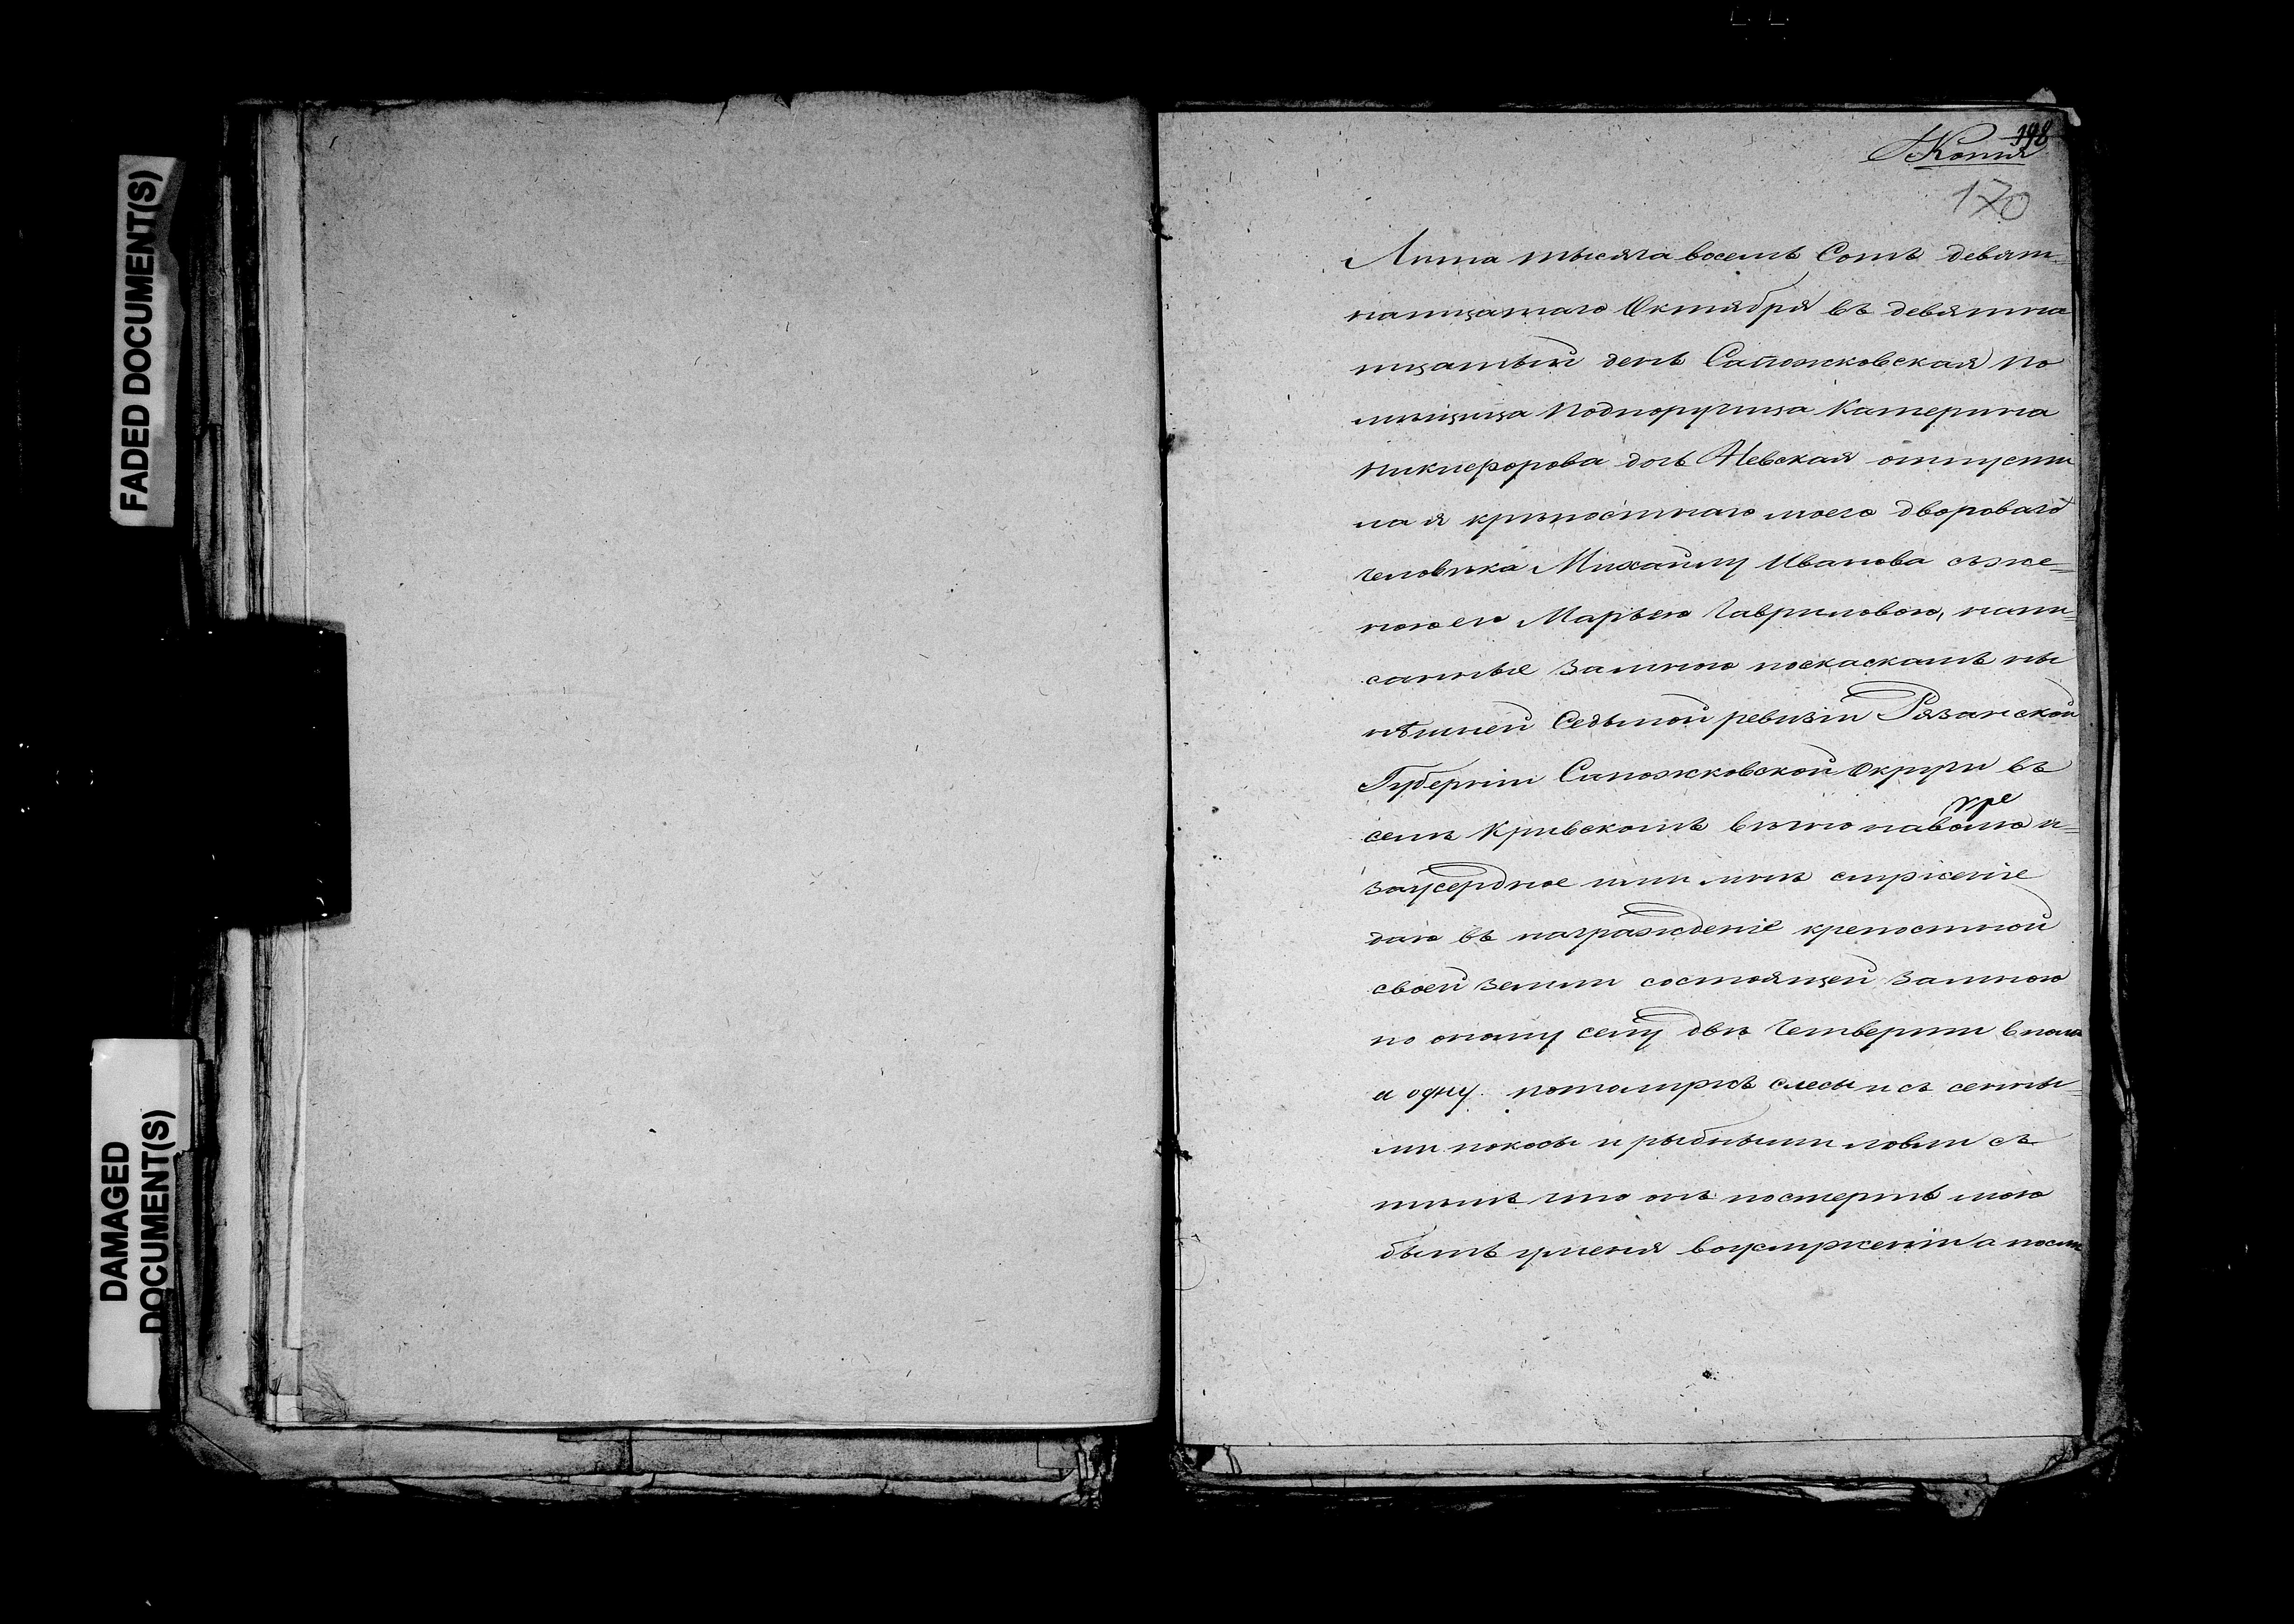 FADED DOCUMENT(S)
DAMAGED
DOCUMENT(S)
198
Копия
170
Лѣта тысяча восемь Сотъ девят=
натцатаго Октября въ девятна
тцатый день Сапожковская по
мѣщица Подпоручица Катерина
Никиѳорова дочь Невская отпусти
ла я крѣпостнаго моего дворового
человѣка Михайлу Иванова съже=
ною ею Марьею Гавриловою, напи=
санные замною поскаскамъ ны
нѣшней Седьмой ревизіи Рязанской
Губерніи Сапожковской Округи въ
селѣ Кривскомъ вѣчно наволю и=
заусердное ими мнѣ служеніе
даю въ награжденіе крепостной
своей земли состоящей замною
по оному селу двѣ Четверти вполѣ
а одну. потомужъ слесы и съ сенны=
ми покосы и рыбными ловли съ
тѣмъ что онъ посмерть мою
быть уменя воуслуженіи а после